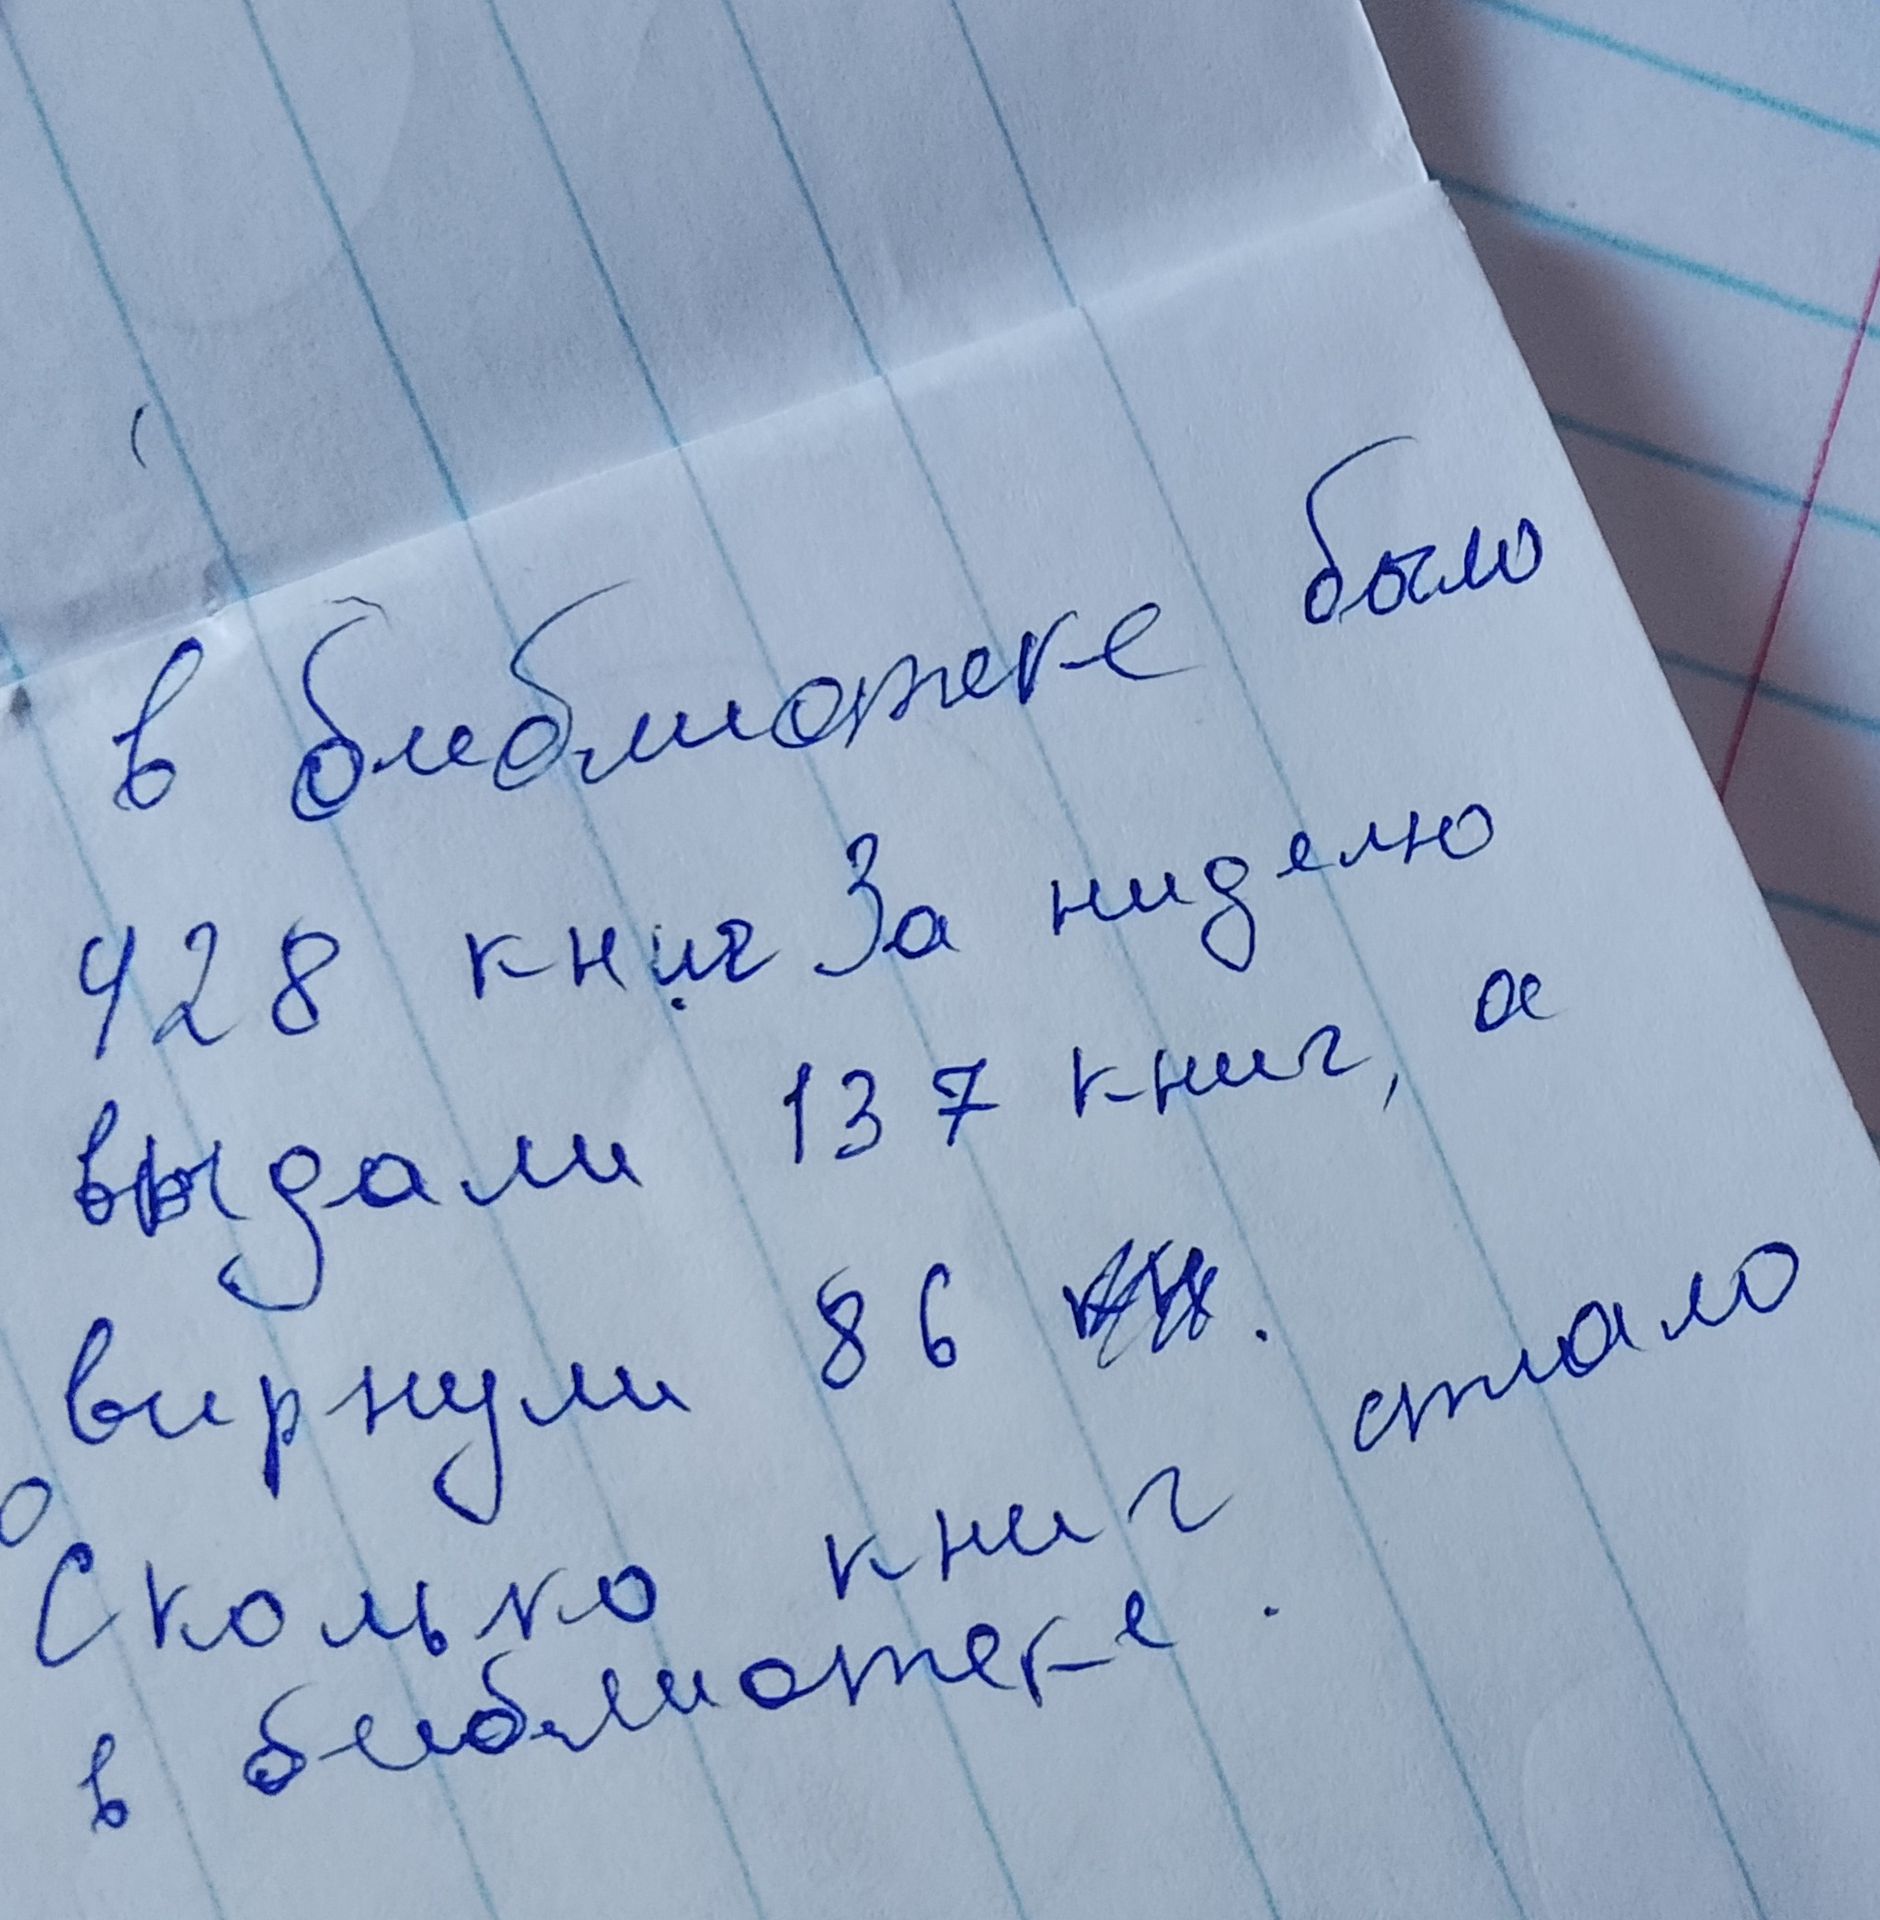 в библиотеке было
428 книг За ниделю
выдали 137 книг, а
вирнули 86 .
Сколько книг стало
в библиотеке.